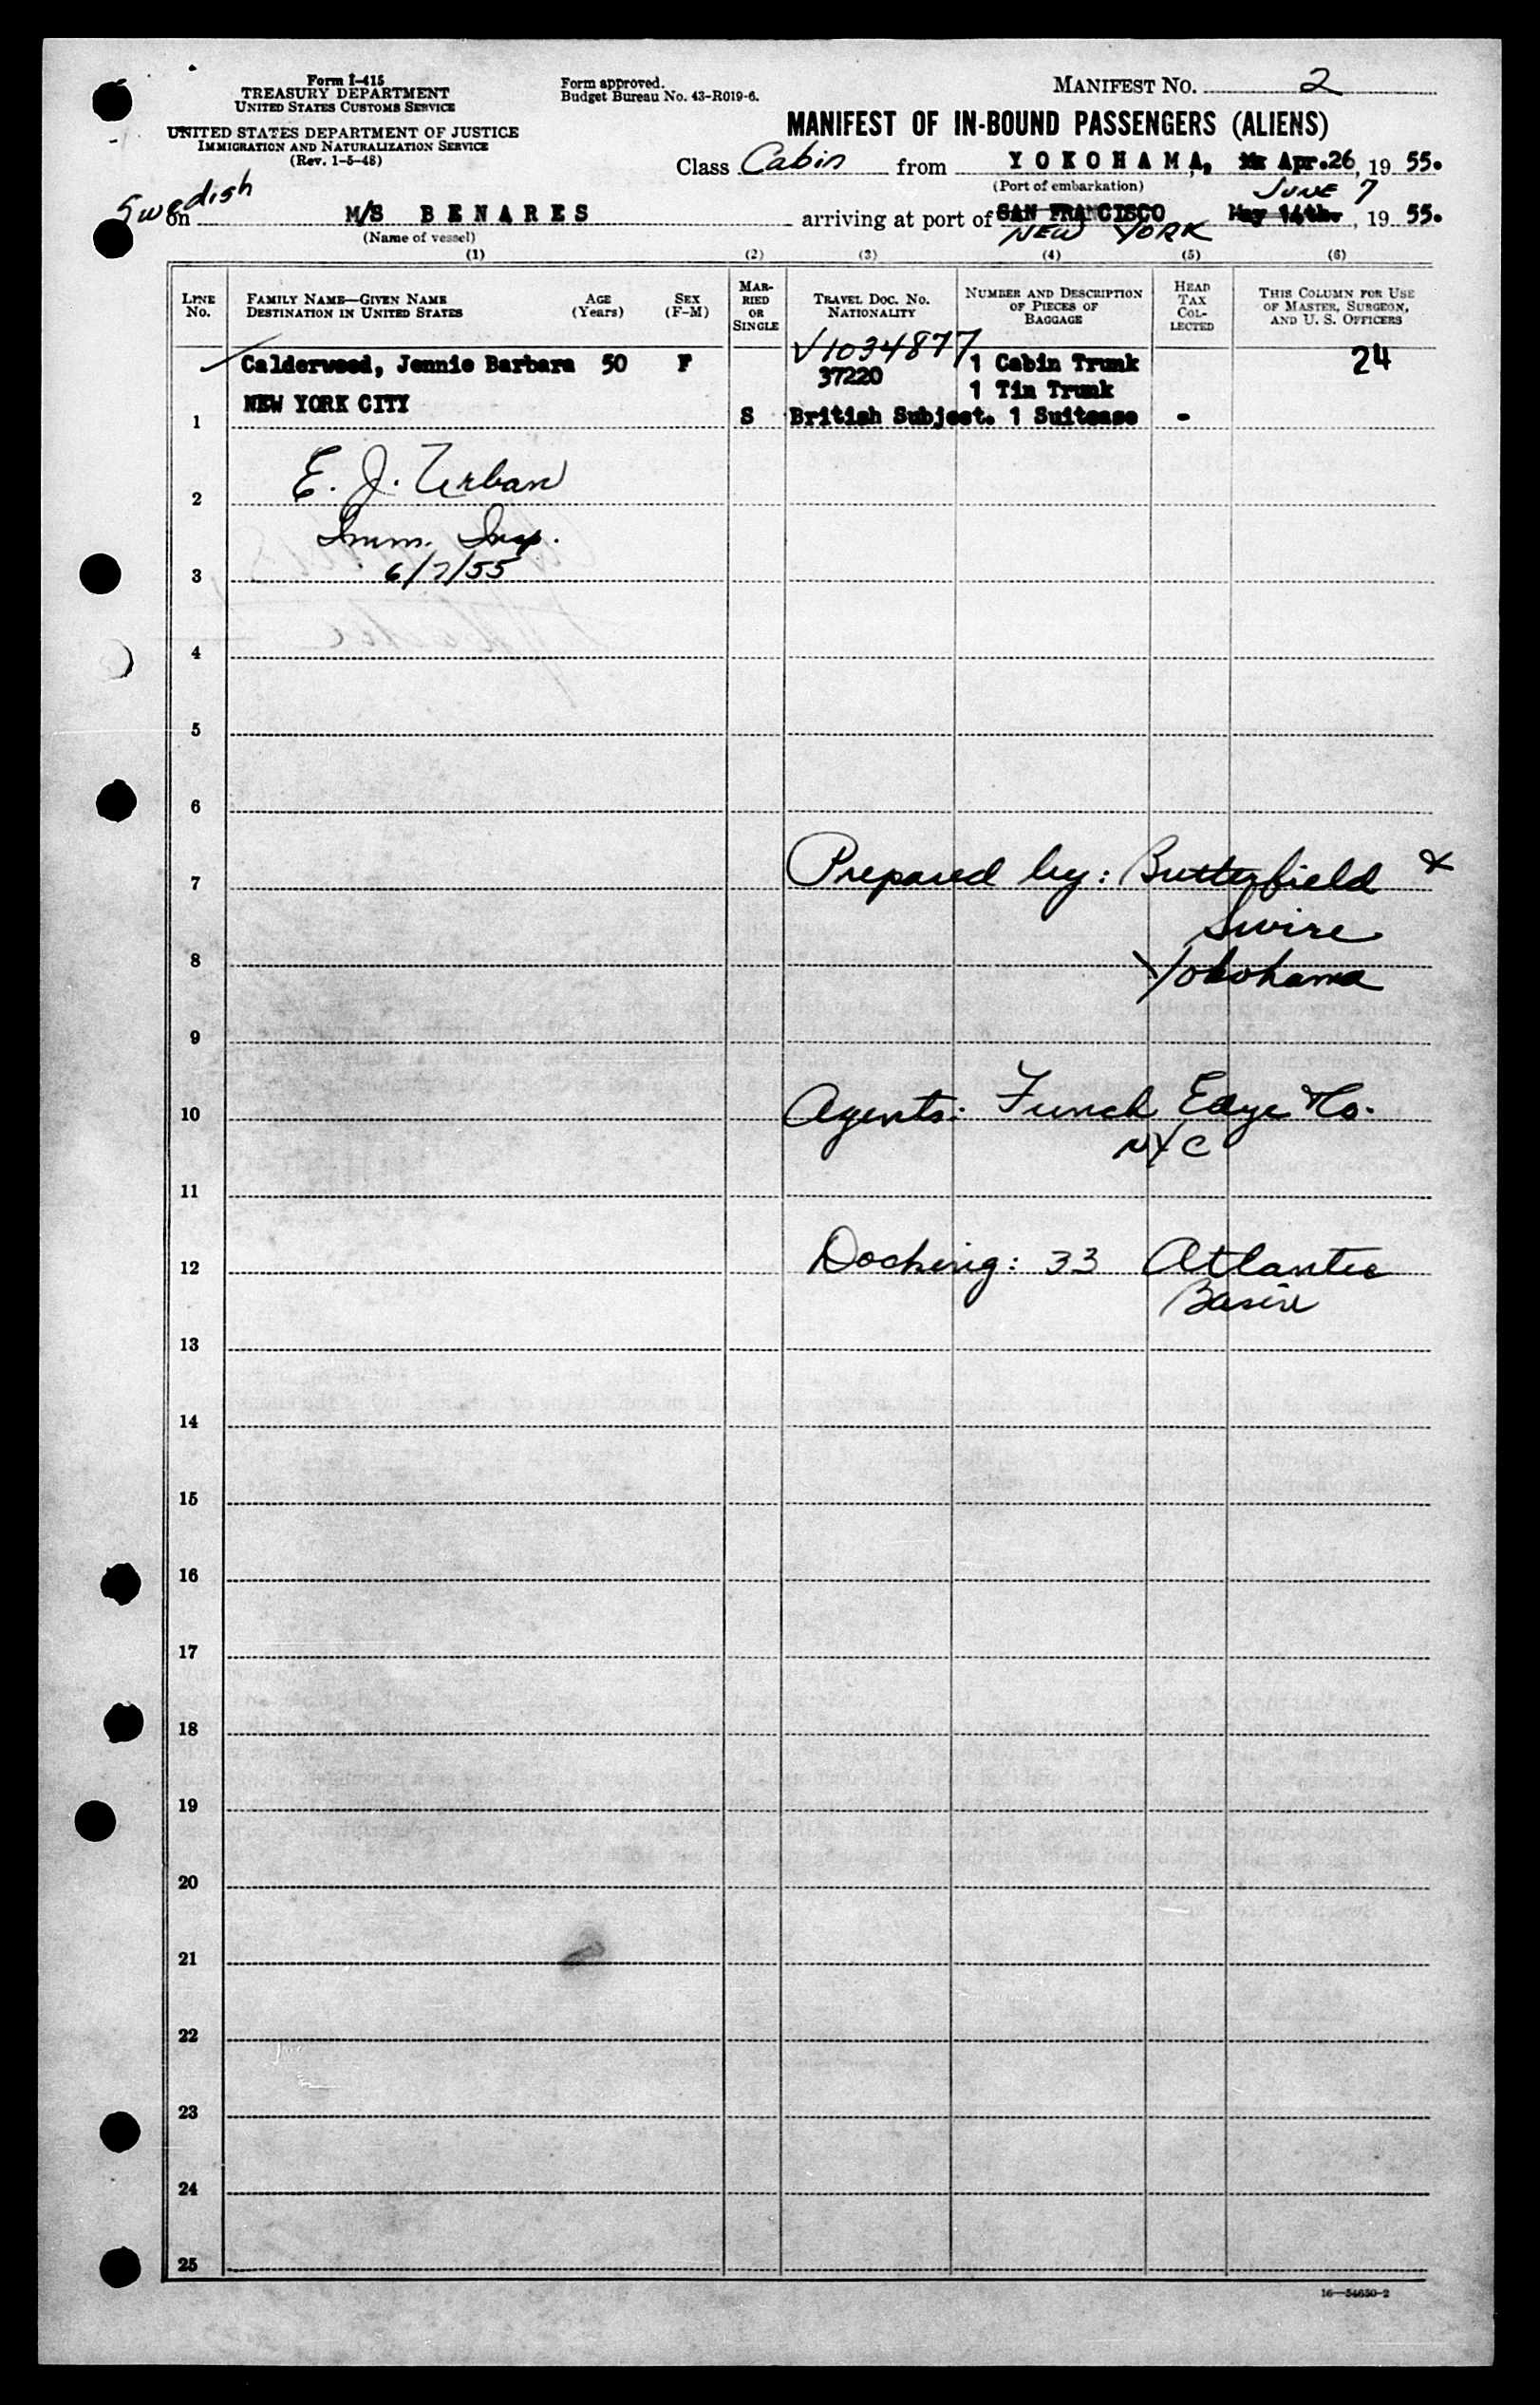 Form I-415
TREASURY DEPARTMENT
UNITED STATES CUSTOMS SERVICE
UNITED STATES DEPARTMENT OF JUSTICE
IMMIGRATION AND NATURALIZATION SERVICE
(Rev. 1-5-48)
Form approved.
Budget Bureau No. 43-R019-6.
MANIFEST NO. 2
MANIFEST OF IN-BOUND PASSENGERS (ALIENS)
Class Cabin from YOKOHAMA, Apr.26, 19 55.
(Port of embarkation)
Swedish
JUNE 7
on M/S BENARES arriving at port of SAN FRANCISCO May 14th., 19 55.
NEW YORK
(Name of vessel)
(1) (2) (3) (4) (5) (6)
LINE No.
FAMILY NAME—GIVEN NAME
DESTINATION IN UNITED STATES
AGE (Years)
SEX (F-M)
MARRIED OR SINGLE
TRAVEL DOC. NO.
NATIONALITY
NUMBER AND DESCRIPTION OF PIECES OF BAGGAGE
HEAD TAX COLLECTED
THIS COLUMN FOR USE OF MASTER, SURGEON, AND U. S. OFFICERS
V1034877
Calderwood, Jennie Barbara 50 F 37220 1 Cabin Trunk 24
1 Tin Trunk
NEW YORK CITY
1 S British Subject. 1 Suitcase -
E. J. Urban
2
Imm. Insp.
3 6/7/55
4
5
6
7 Prepared by: Butterfield &
Swire
8 Yokohama
9
10 Agents: Funch Edye & Co.
NYC
11
12 Docking: 33 Atlantic
Basin
13
14
15
16
17
18
19
20
21
22
23
24
25
16—54650-2